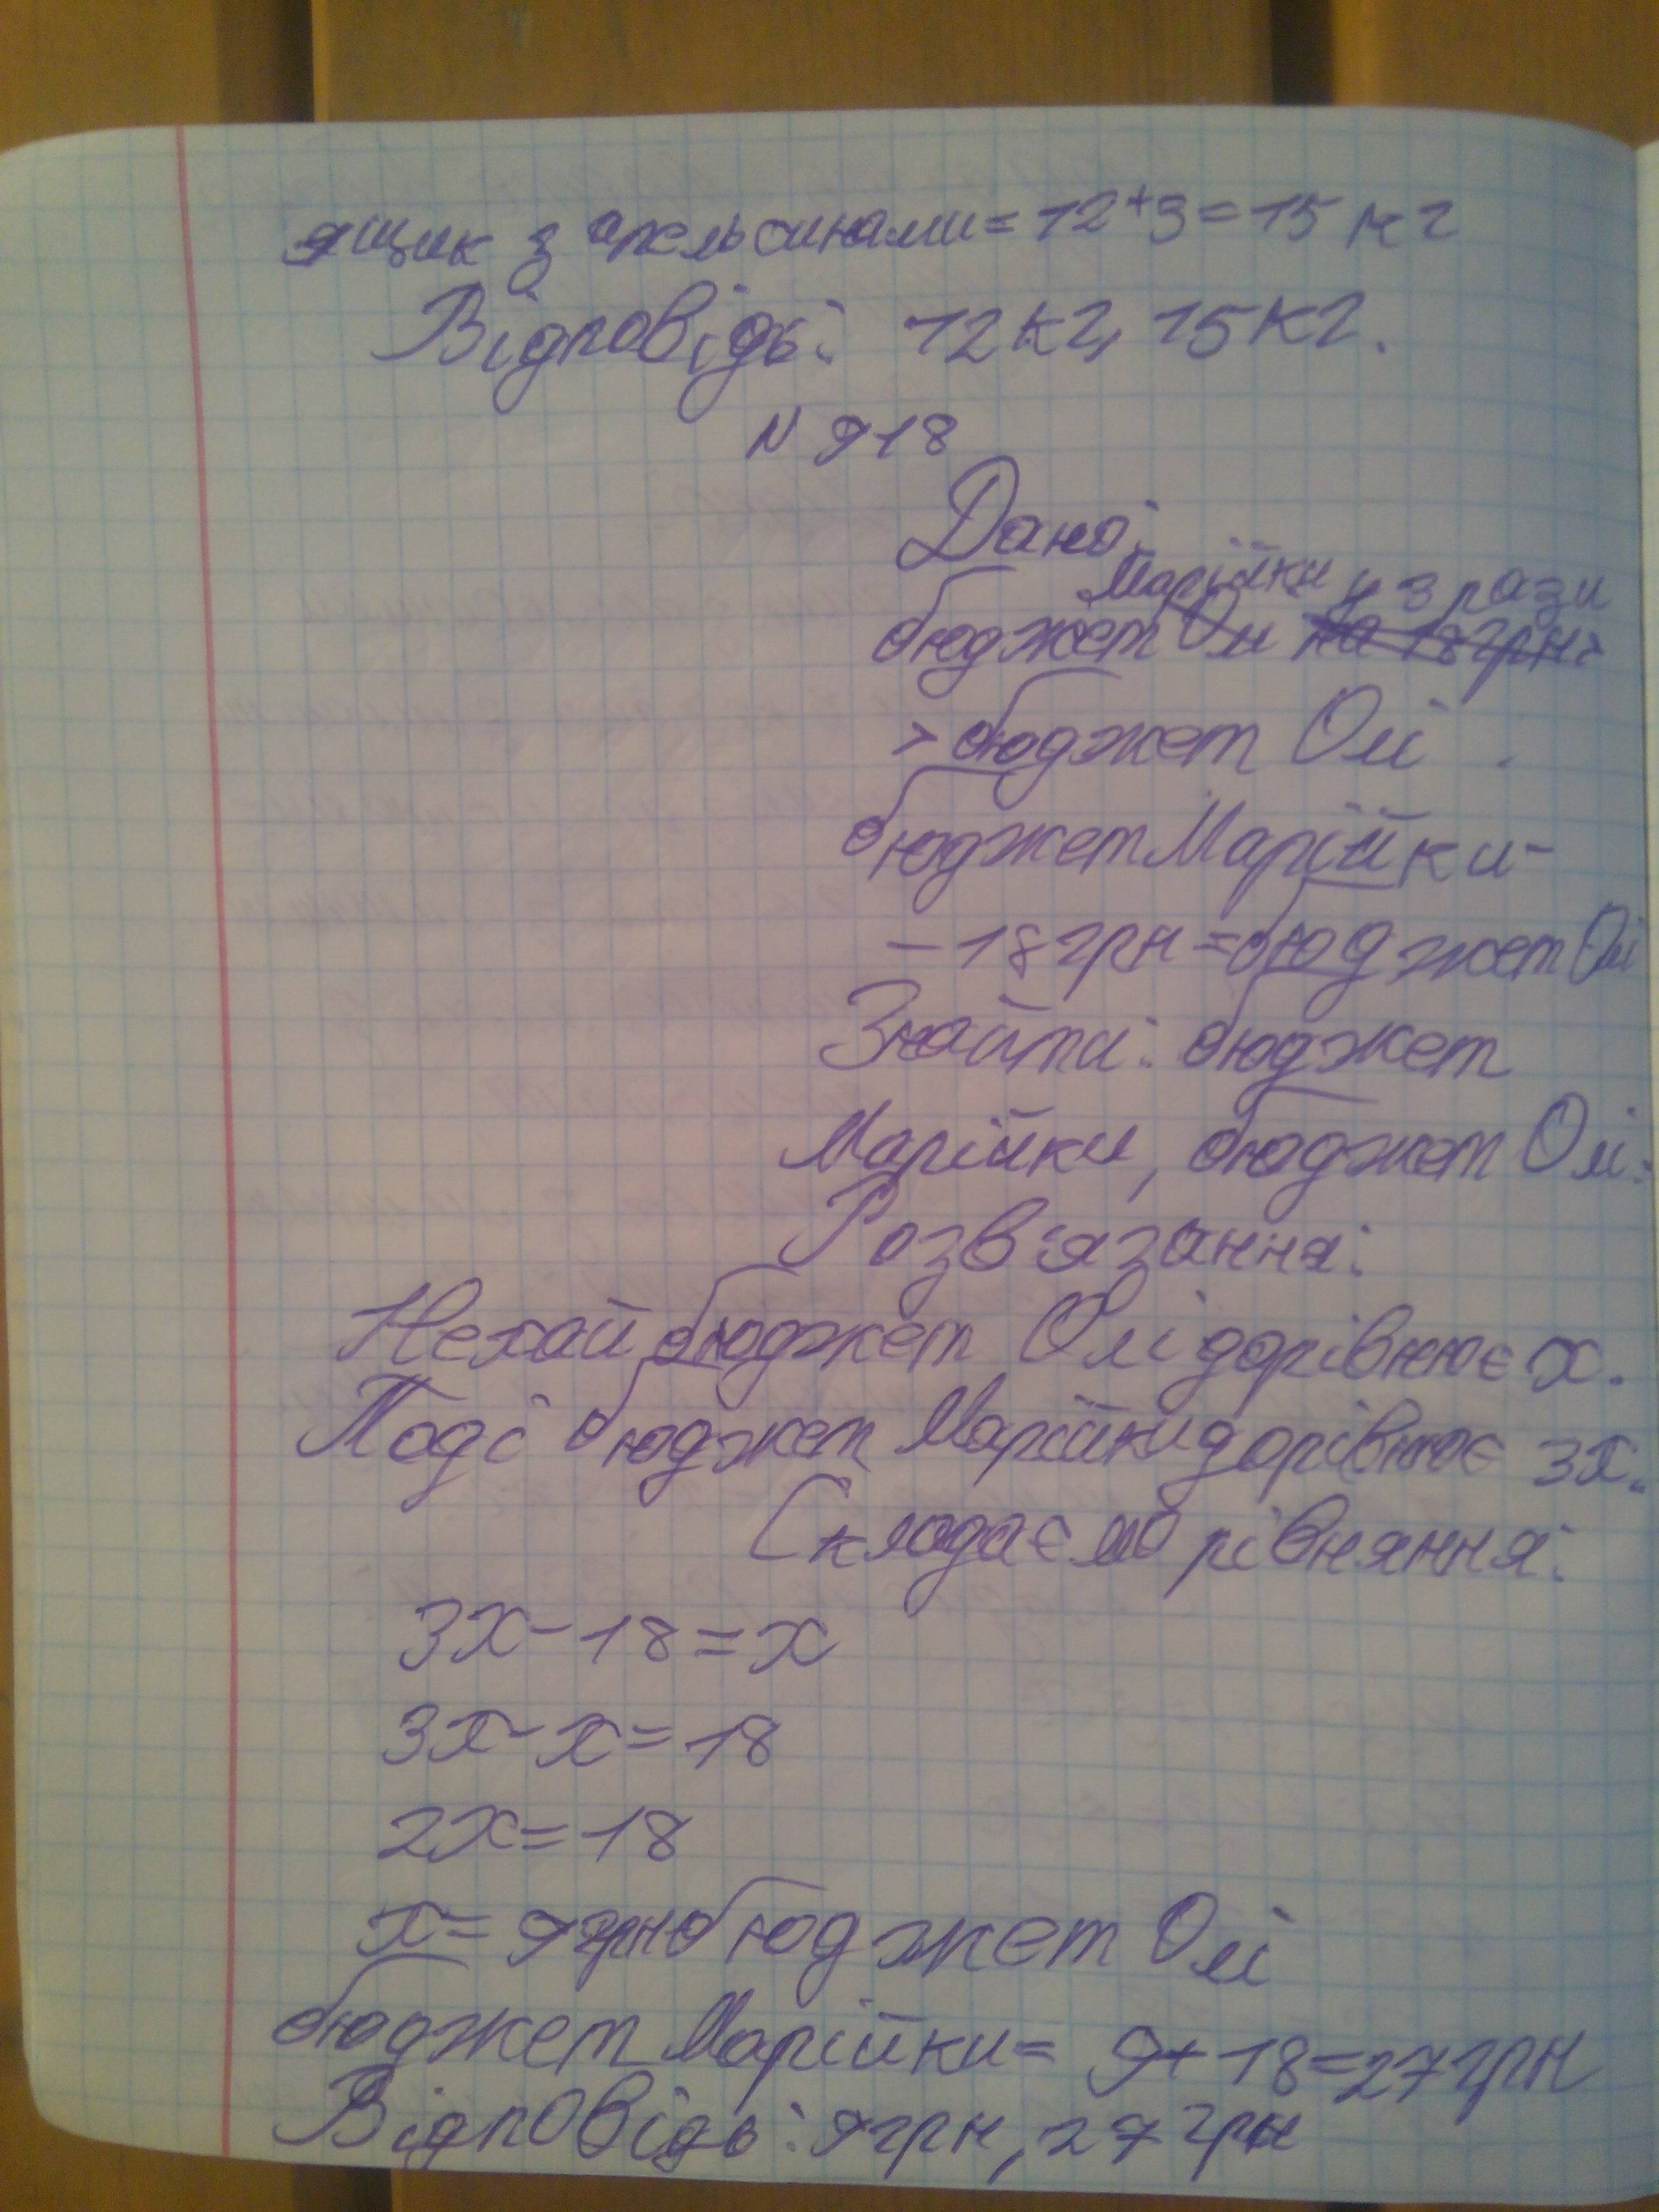 ящик з апельсинами = 12+3=15 кг
Відповідь: 12кг, 15кг.
N 918
Дано:
Марійки у 3 рази
бюджет Олі на 18 грн >
> бюджет Олі .
бюджет Марійки-
- 18 грн = бюджет Олі
Знайти: бюджет
Марійки, бюджет Олі.
Розв'язання:
Нехай бюджет Олі дорівнює x.
Тоді бюджет Марійки дорівнює 3x.
Складаємо рівняння:
3x-18=x
3x-x=18
2x=18
x= 9грн бюджет Олі
бюджет Марійки= 9+18=27грн
Відповідь: 9грн, 27грн